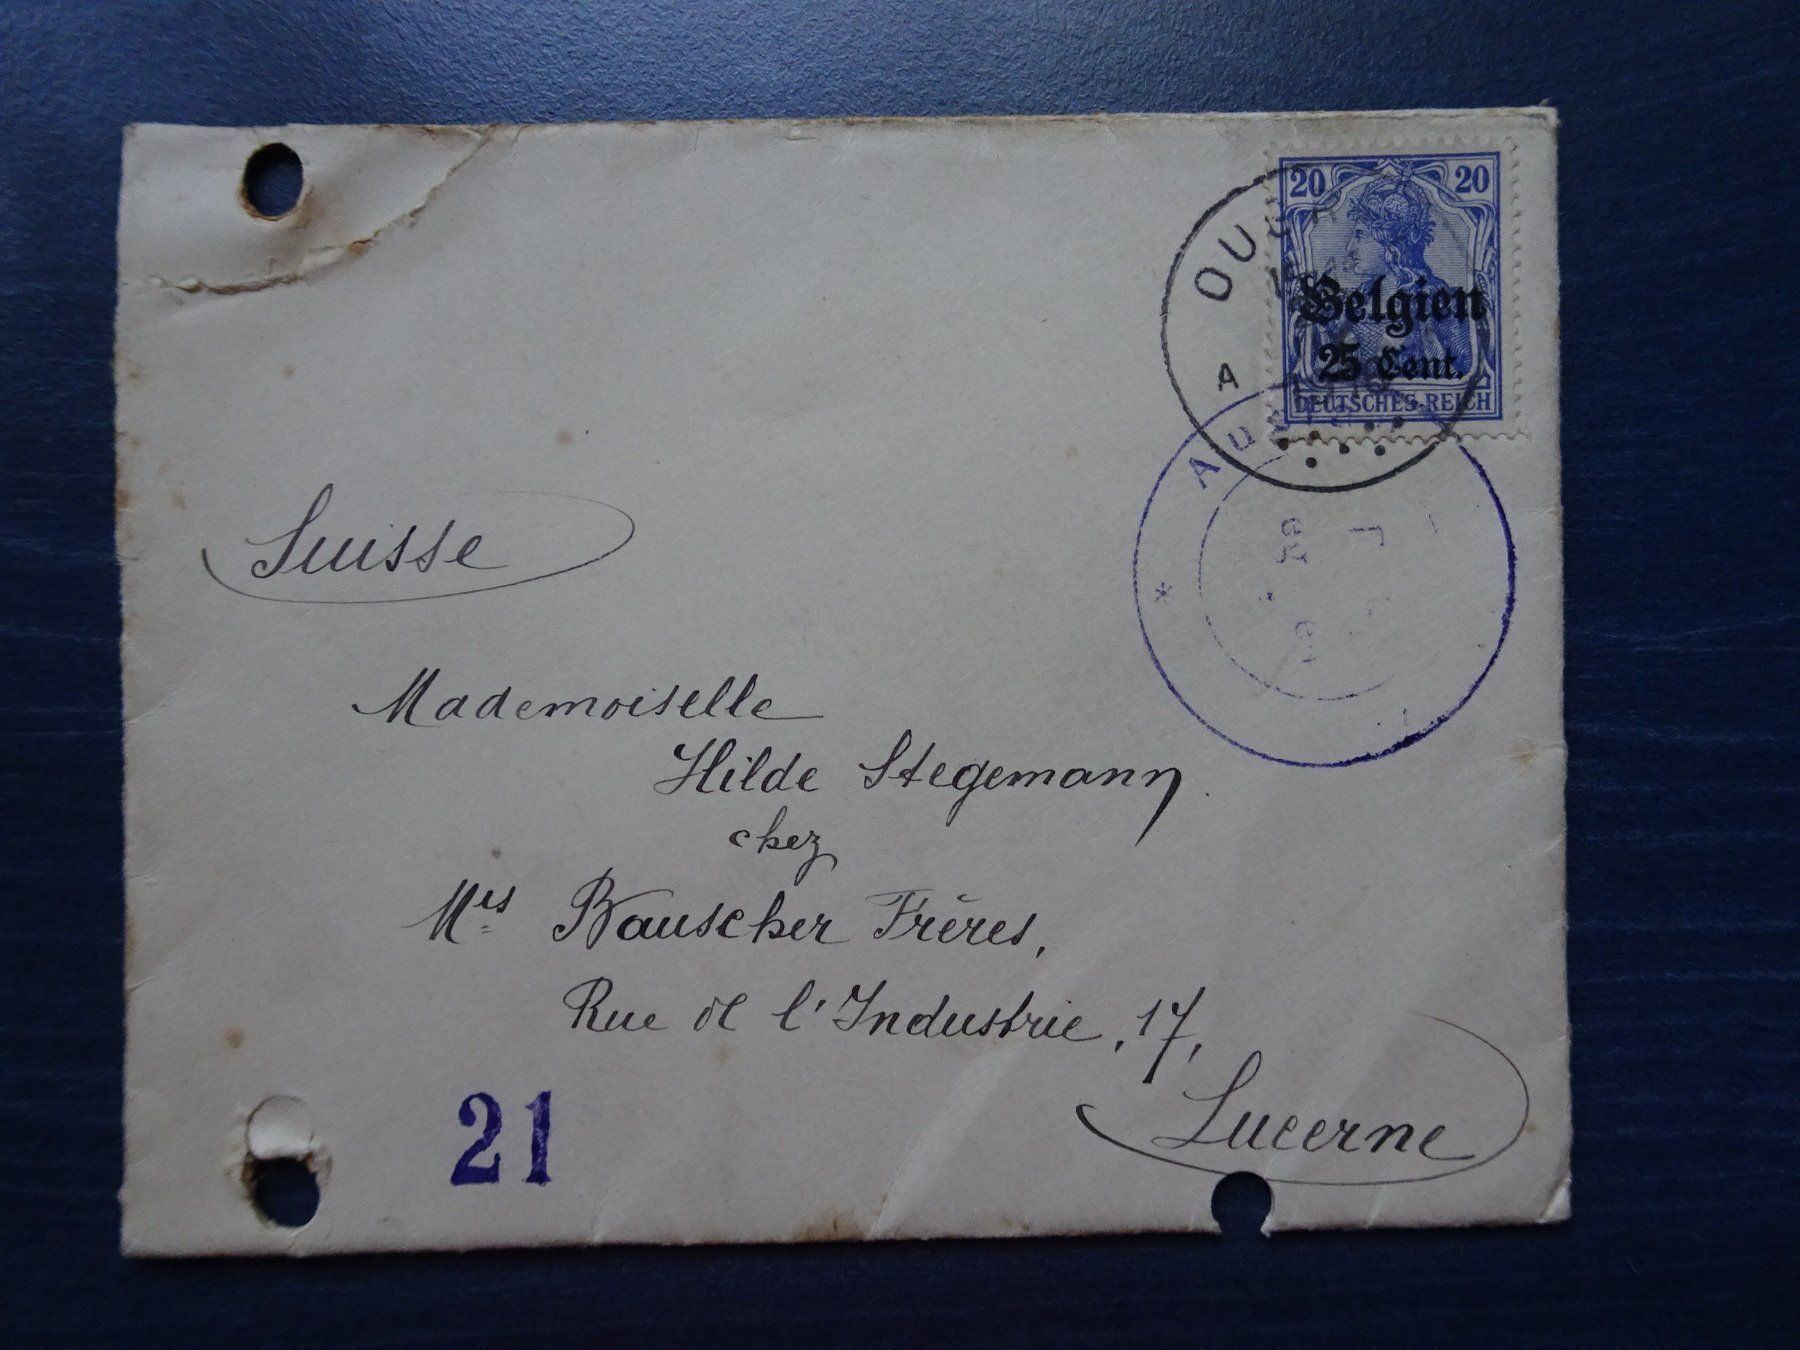 20 20
Belgien
25 Cent.
DEUTSCHES REICH
A
Suisse
Mademoiselle
Hilde Stegemann
chez
Mrs Bauscher Frères,
Rue de l'Industrie, 17,
Lucerne
21